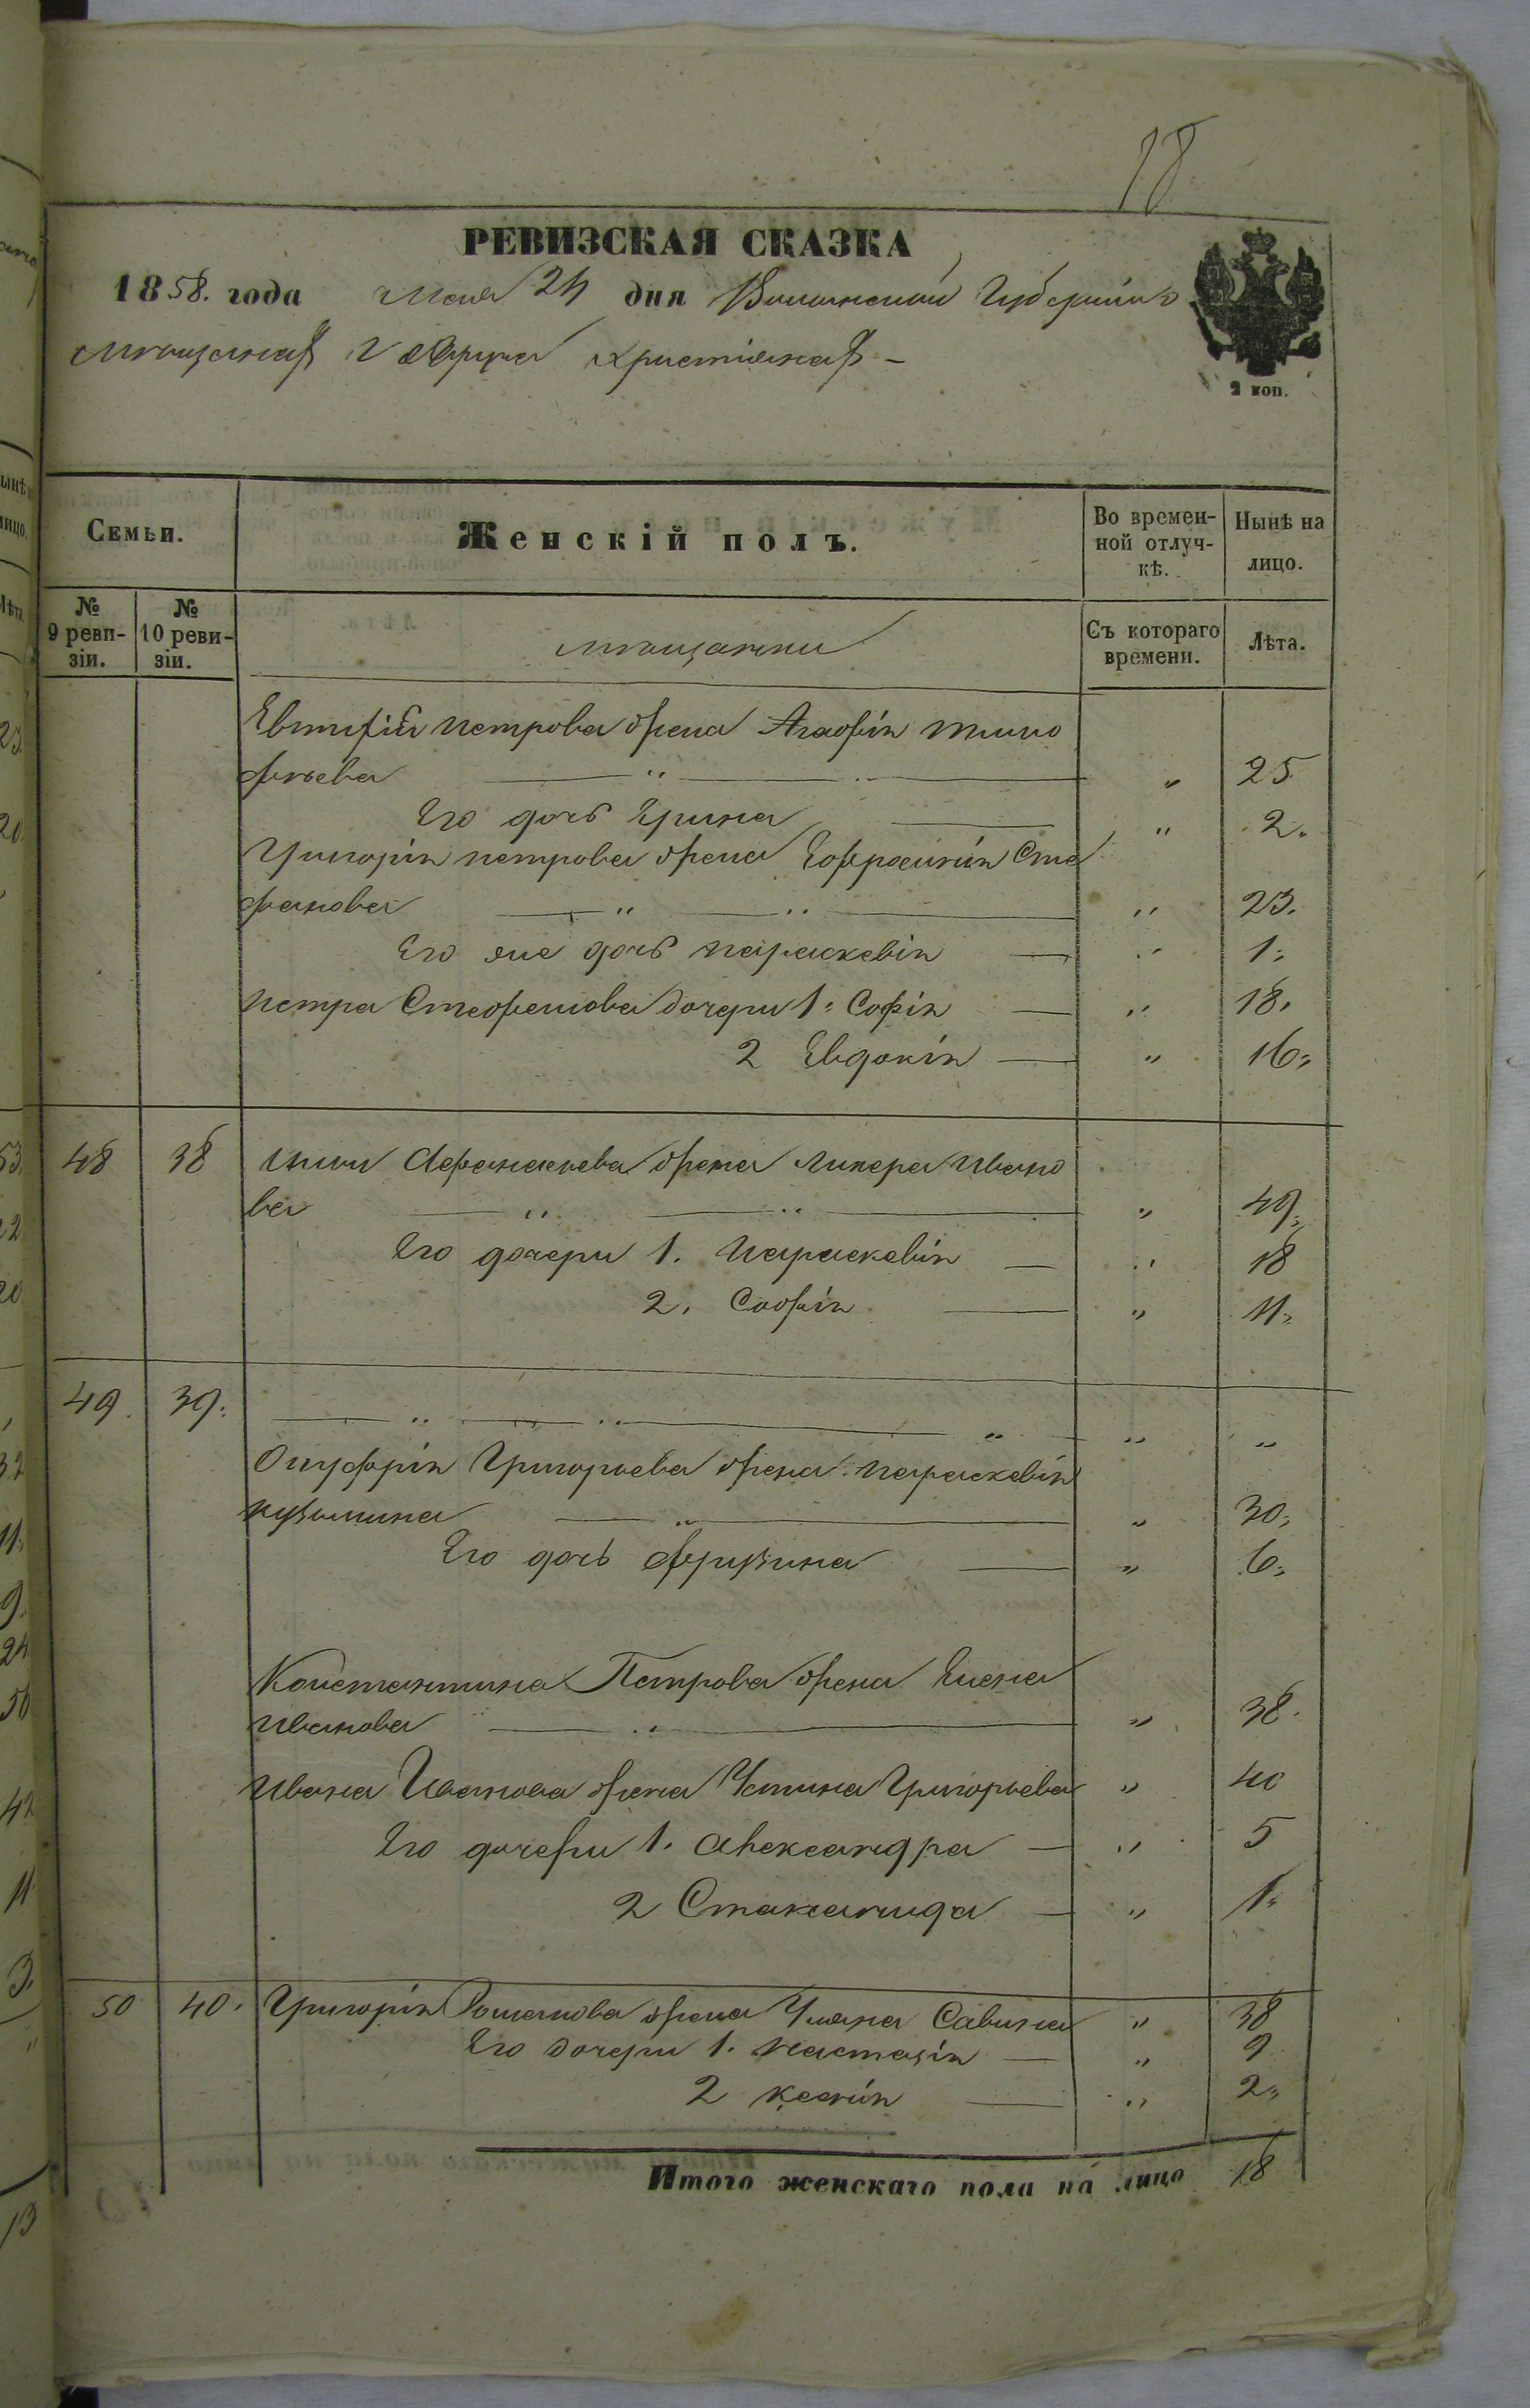 18
РЕВИЗСКАЯ СКАЗКА
1858. года Мая 24 дня Волынской Губерніи
мѣщанах г Овруча христіянах -
2 коп.
Семьи.
Женскій полъ.
Во времен-
ной отлуч-
кѣ.
Нынѣ на
лицо.
№
9 реви-
зіи.
№
10 реви-
зіи.
мѣщанки
Съ котораго
времени.
Лѣта.
Евтифія петрова жена Агафія тимо
фѣева " " 25
Его дочь Ерина " 2.
Григорія петрова жена Ефросинія Сте
фанова " " 23.
Его же дочь параскевія " 1.
петра Стефанова дочери 1. Софія " 18.
2 Евдокія " 16.
48 38 Афанасьева жена Ликера Ивано
ва " " 49.
Его дочери 1. Параскевія " 18
2. Софія " 11.
49. 39. " " " " "
Онуфрія Григорьева жена параскевія
кузьмина " " 30.
Его дочь Фрузина " 6.
Константина Петрова жена Елена
Иванова " " 38.
Ивана Иванова жена Устина Григорьева " 40
Его дочери 1. Александра " 5
2 Стаканида " 1.
50 40. Григорія Романова жена Уляна Савина " 38
Его дочери 1. Настазія " 9
2 Ксенія " 2.
Итого женскаго пола на лицо 18